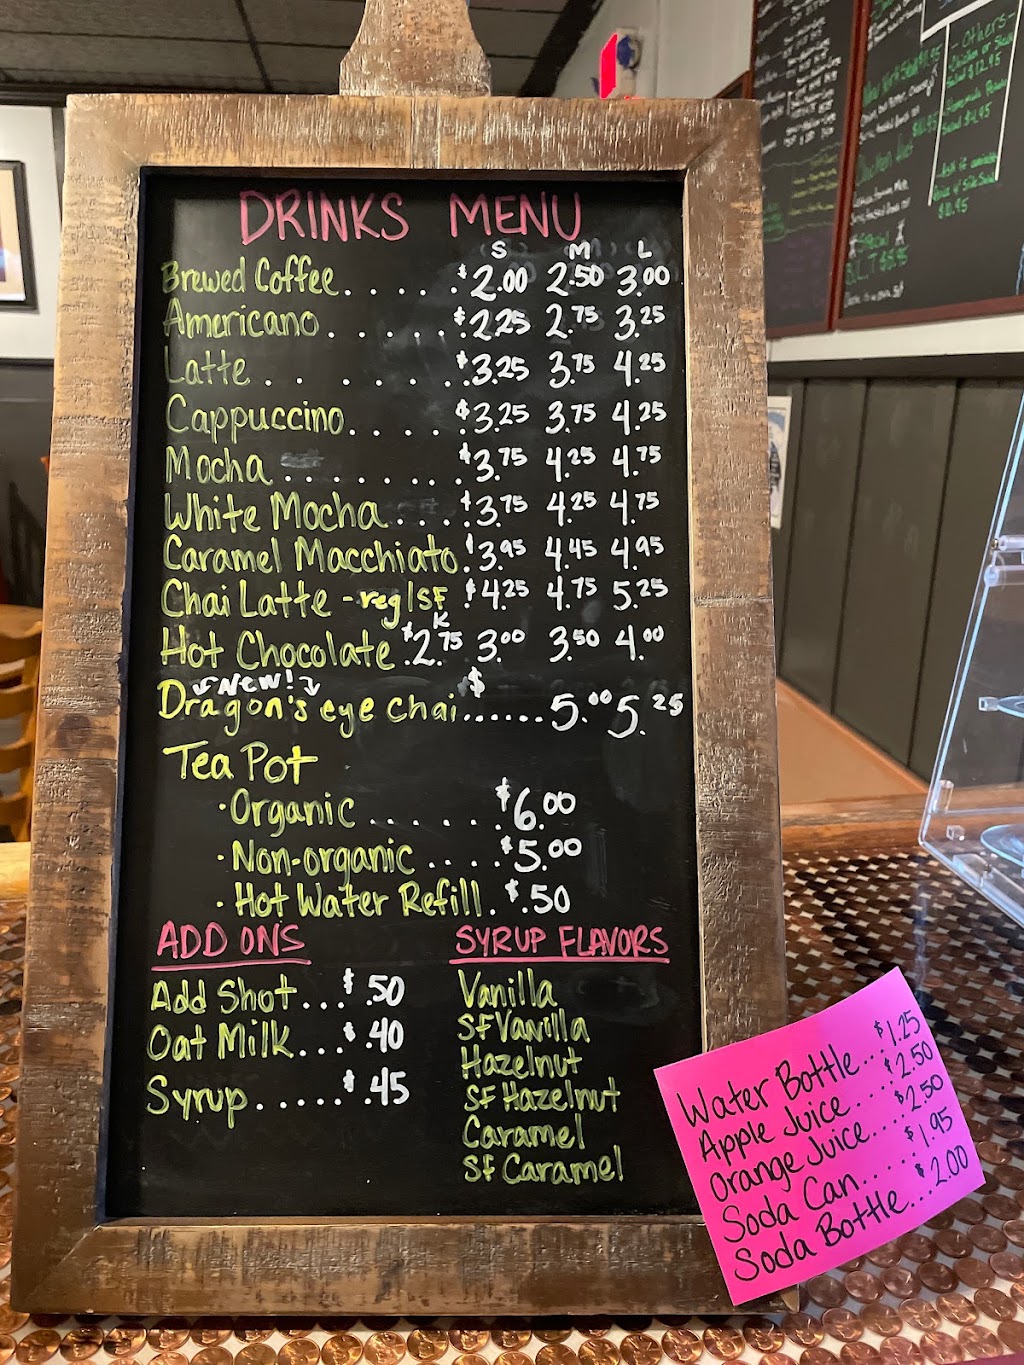 DRINKS MENU
S M L
Brewed Coffee......$2.00 2.50 3.00
Americano......$2.25 2.75 3.25
Latte.......$3.25 3.75 4.25
Cappuccino....$3.25 3.75 4.25
Mocha........$3.75 4.25 4.75
White Mocha....$3.75 4.25 4.75
Caramel Macchiato.$3.95 4.45 4.95
Chai Latte - reg/sf $4.25 4.75 5.25
K
Hot Chocolate.$2.75 3.00 3.50 4.00
NEW!
Dragon's eye chai......$5.00 5.25
Tea Pot
· Organic......$6.00
· Non-organic....$5.00
· Hot Water Refill.$.50
ADD ONS
Add Shot...$.50
Oat Milk...$.40
Syrup.....$.45
SYRUP FLAVORS
Vanilla
SF Vanilla
Hazelnut
SF Hazelnut
Caramel
SF Caramel
Water Bottle...$1.25
Apple Juice....$2.50
Orange Juice....$2.50
Soda Can.....$1.95
Soda Bottle...$2.00
- Others -
Salad $12.95
Salad $4.95
$10.95
B.L.T $8.95